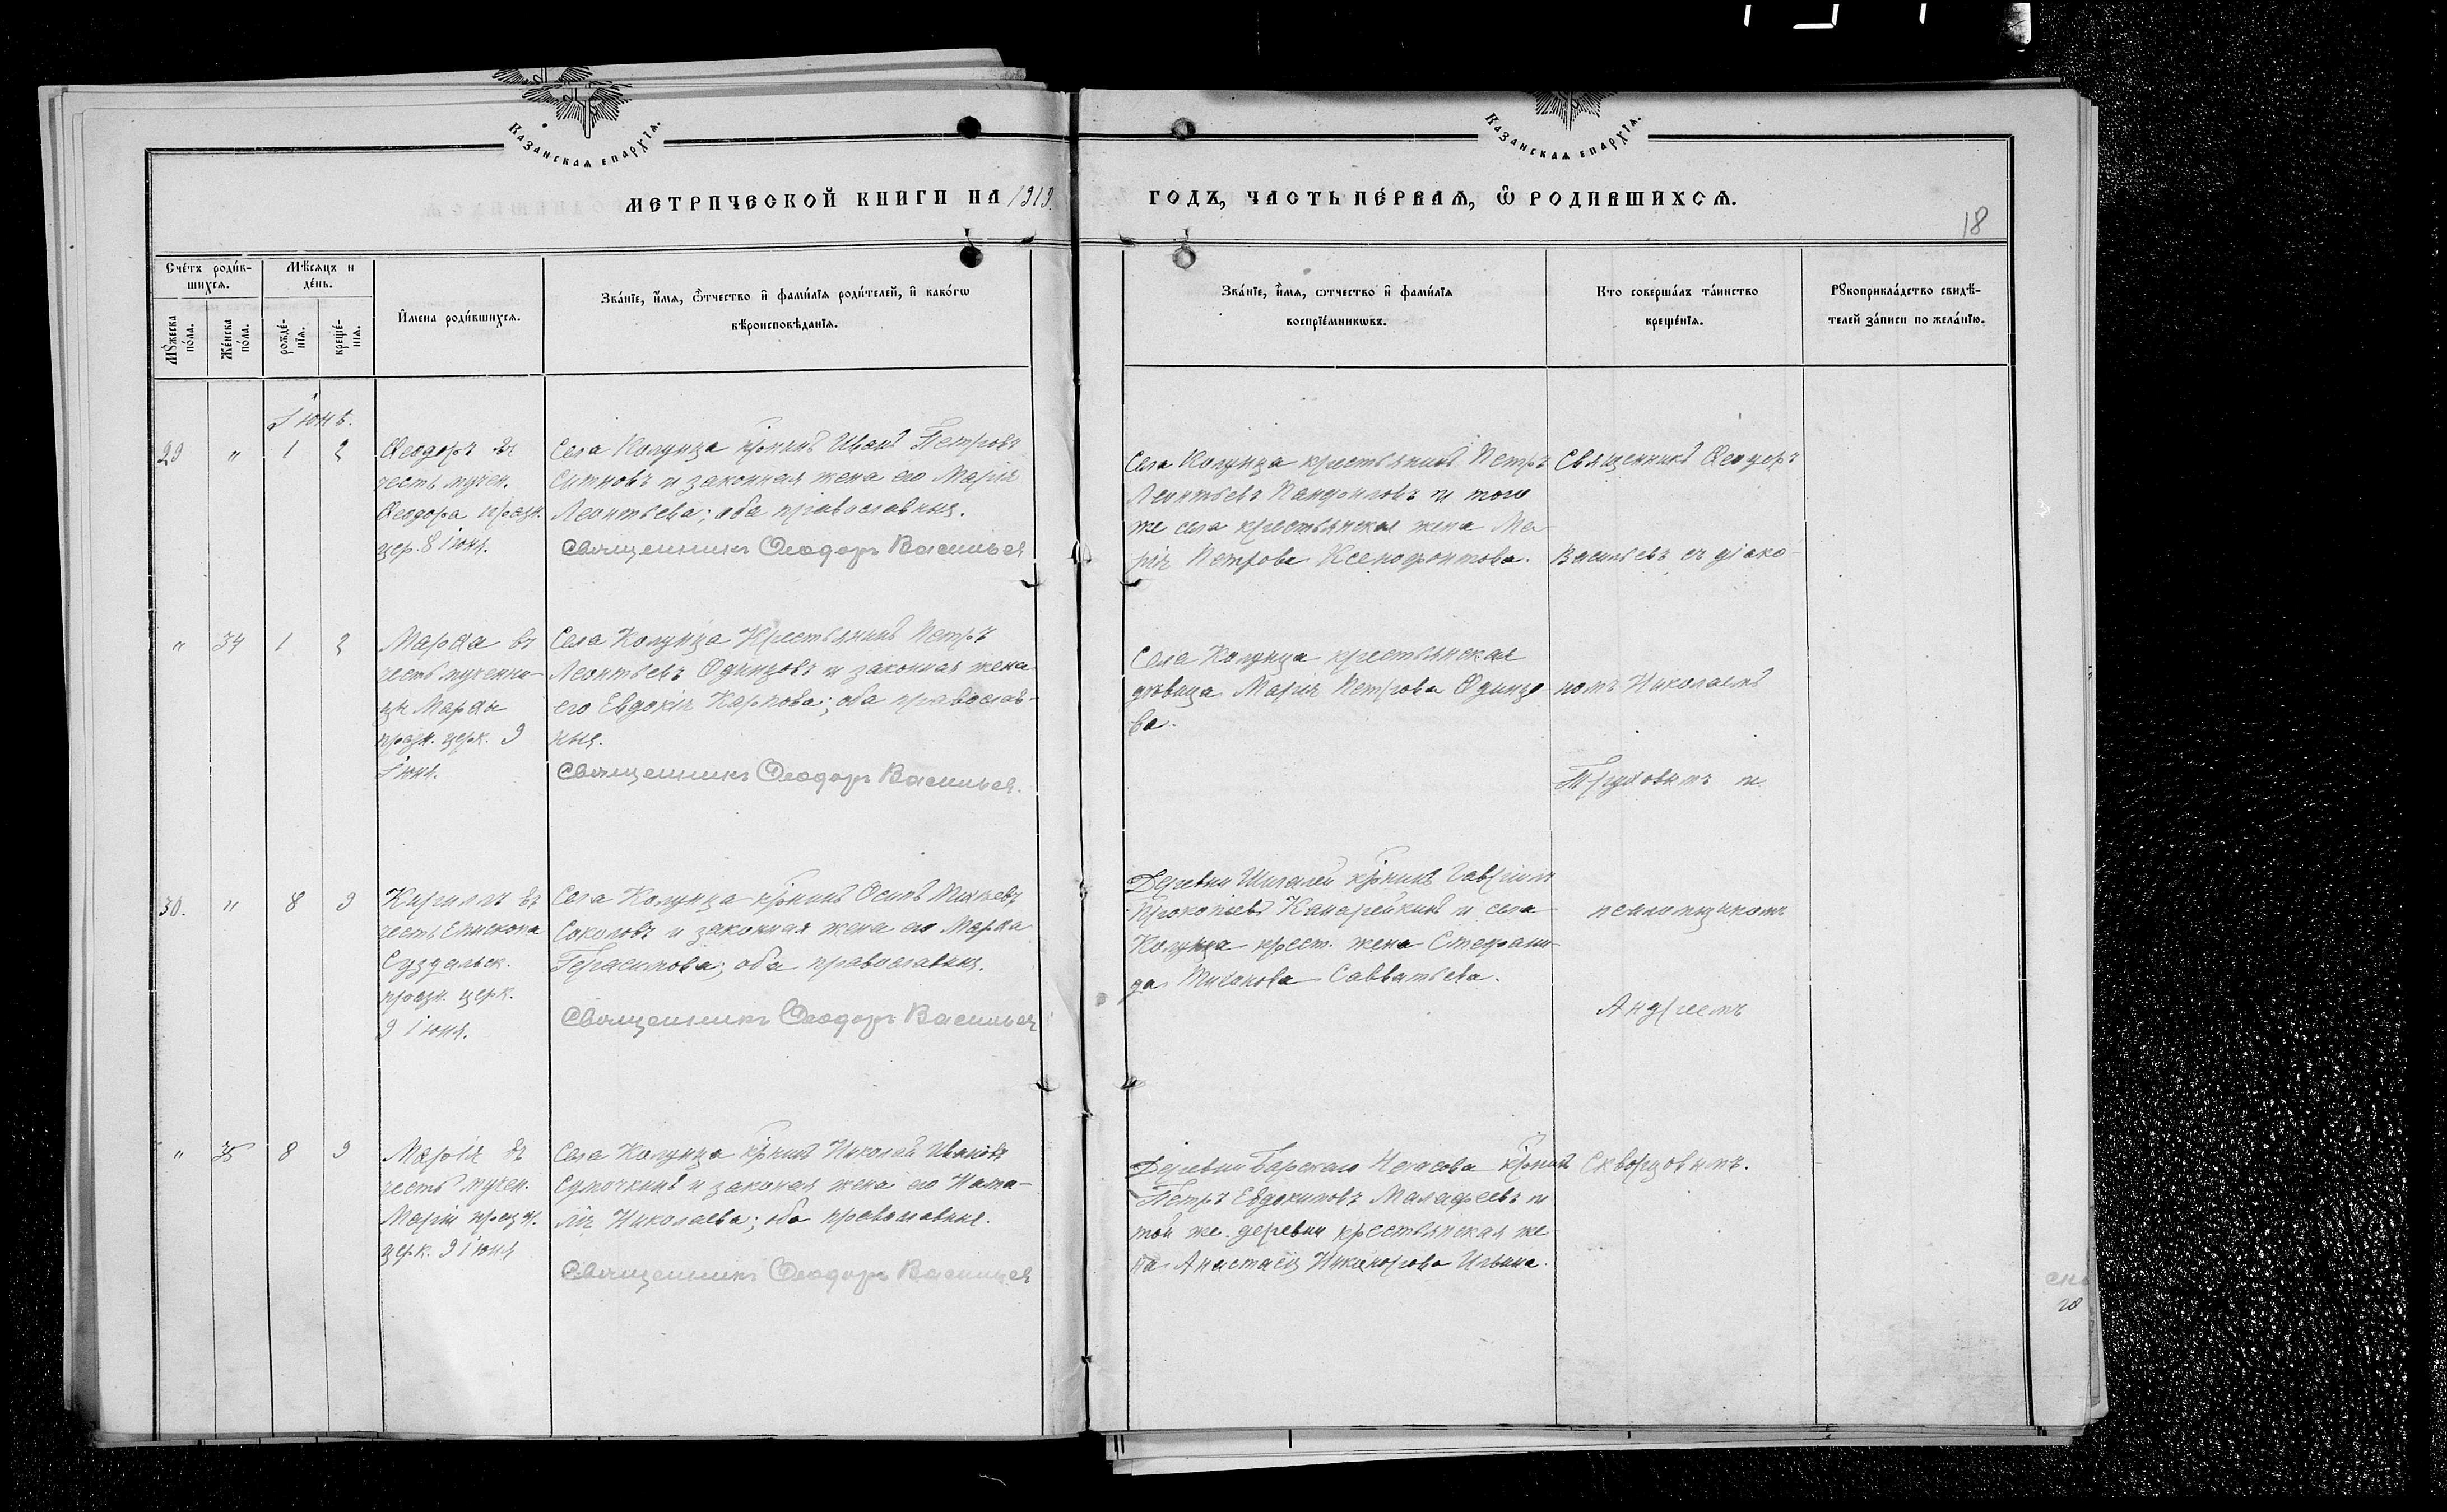 Казанская епархія.
Казанская епархія.
МЕТРИЧЕСКОЙ КНИГИ НА 1919.
ГОДЪ, ЧАСТЬ ПЕ́РВАЯ, Ѽ РОДИВШИХСЯ.
18
Сче́тъ роди́в-
шихся.
Мꙋ́жеска по́ла.
Же́нска по́ла.
Мѣ́сяцъ и
де́нь.
рожде́-
нїя.
креще́-
нїя.
И҆́мена роди́вшихся.
Зва́нїе, и҆́мя, ѻ҆́тчество и҆ фами́лїя роди́телей, и҆ како́гѡ
вѣроисповѣ́данїя.
Зва́нїе, и҆́мя, ѻтчество и҆ фами́лїя
воспрїе́мникѡвъ.
Кто соверша́лъ та́инство
креще́нїя.
Рꙋкоприкла́дство свидѣ́-
телей за́писи по жела́нїю.
Іюнь.
29 " 1 2
Ѳеодоръ въ
честь мучен.
Ѳеодора празн.
цер. 8 іюня.
Села Колунца кр-нинъ Иванъ Петровъ
Ситновъ и законная жена его Марія
Леонтьева; оба православныя.
Священникъ Ѳеодоръ Васильев
Села Колунца крестьянинъ Петръ
Леонтьевъ Панфиловъ и того
же села крестьянская жена Ма-
рія Петрова Ксенофонтова.
Священникъ Ѳеодоръ
Васильевъ съ діако-
" 34 1 2
Марѳа въ
честь мученни-
цы Марѳы
празн. церк. 9
Іюня.
Села Колунца Крестьянинъ Петръ
Леонтьевъ Одинцовъ и законная жена
его Евдокія Карпова; оба православ-
ныя.
Священникъ Ѳеодоръ Васильев.
Села Колунца крестьянская
дѣвица Марія Петрова Одинцо-
ва.
номъ Николаемъ
Труховымъ и
30. " 8 9
Кириллъ въ
честь Епископа
Суздальск.
празн. церк.
9 іюня.
Села Колунца кр-нинъ Осипъ
Соколовъ и законная жена его Марѳа
Герасимова; оба православныя.
Священникъ Ѳеодоръ Васильев
Деревни Шигалей кр-нинъ Гавріилъ
Прокопьевъ Канарейкинъ и села
Колунца крест. жена Стефани-
да Савватьева.
псаломщикомъ
Андреемъ
" 35 8 9
Марія въ
честь мучен.
Маріи празн.
церк. 9 іюня
Села Колунца кр-нинъ Николай Ивановъ
Сумочкинъ и законая жена его Ната-
лія Николаева; оба православныя.
Священникъ Ѳеодоръ Васильев
Деревни Барскаго Исакова кр-нинъ
Петръ Евдокимовъ Малафеевъ и
той же деревни крестьянская же-
на Анастасія Никанорова Ильина.
Скворцовымъ.